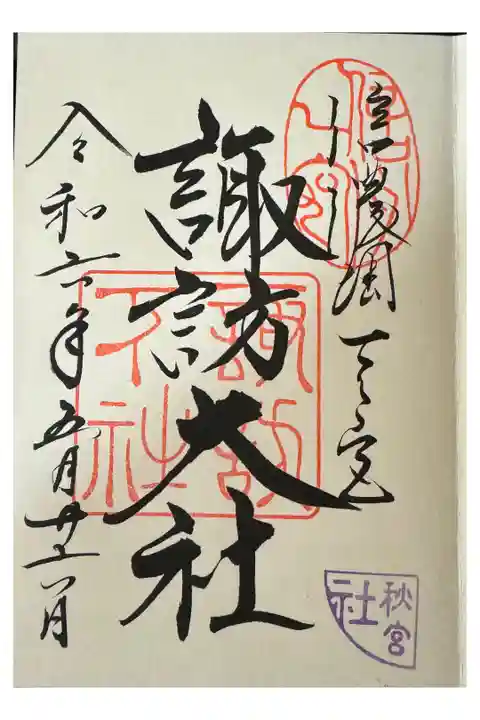 信濃國一之宮
諏訪大社
令和六年五月廿六日
諏訪
下社
秋宮
社